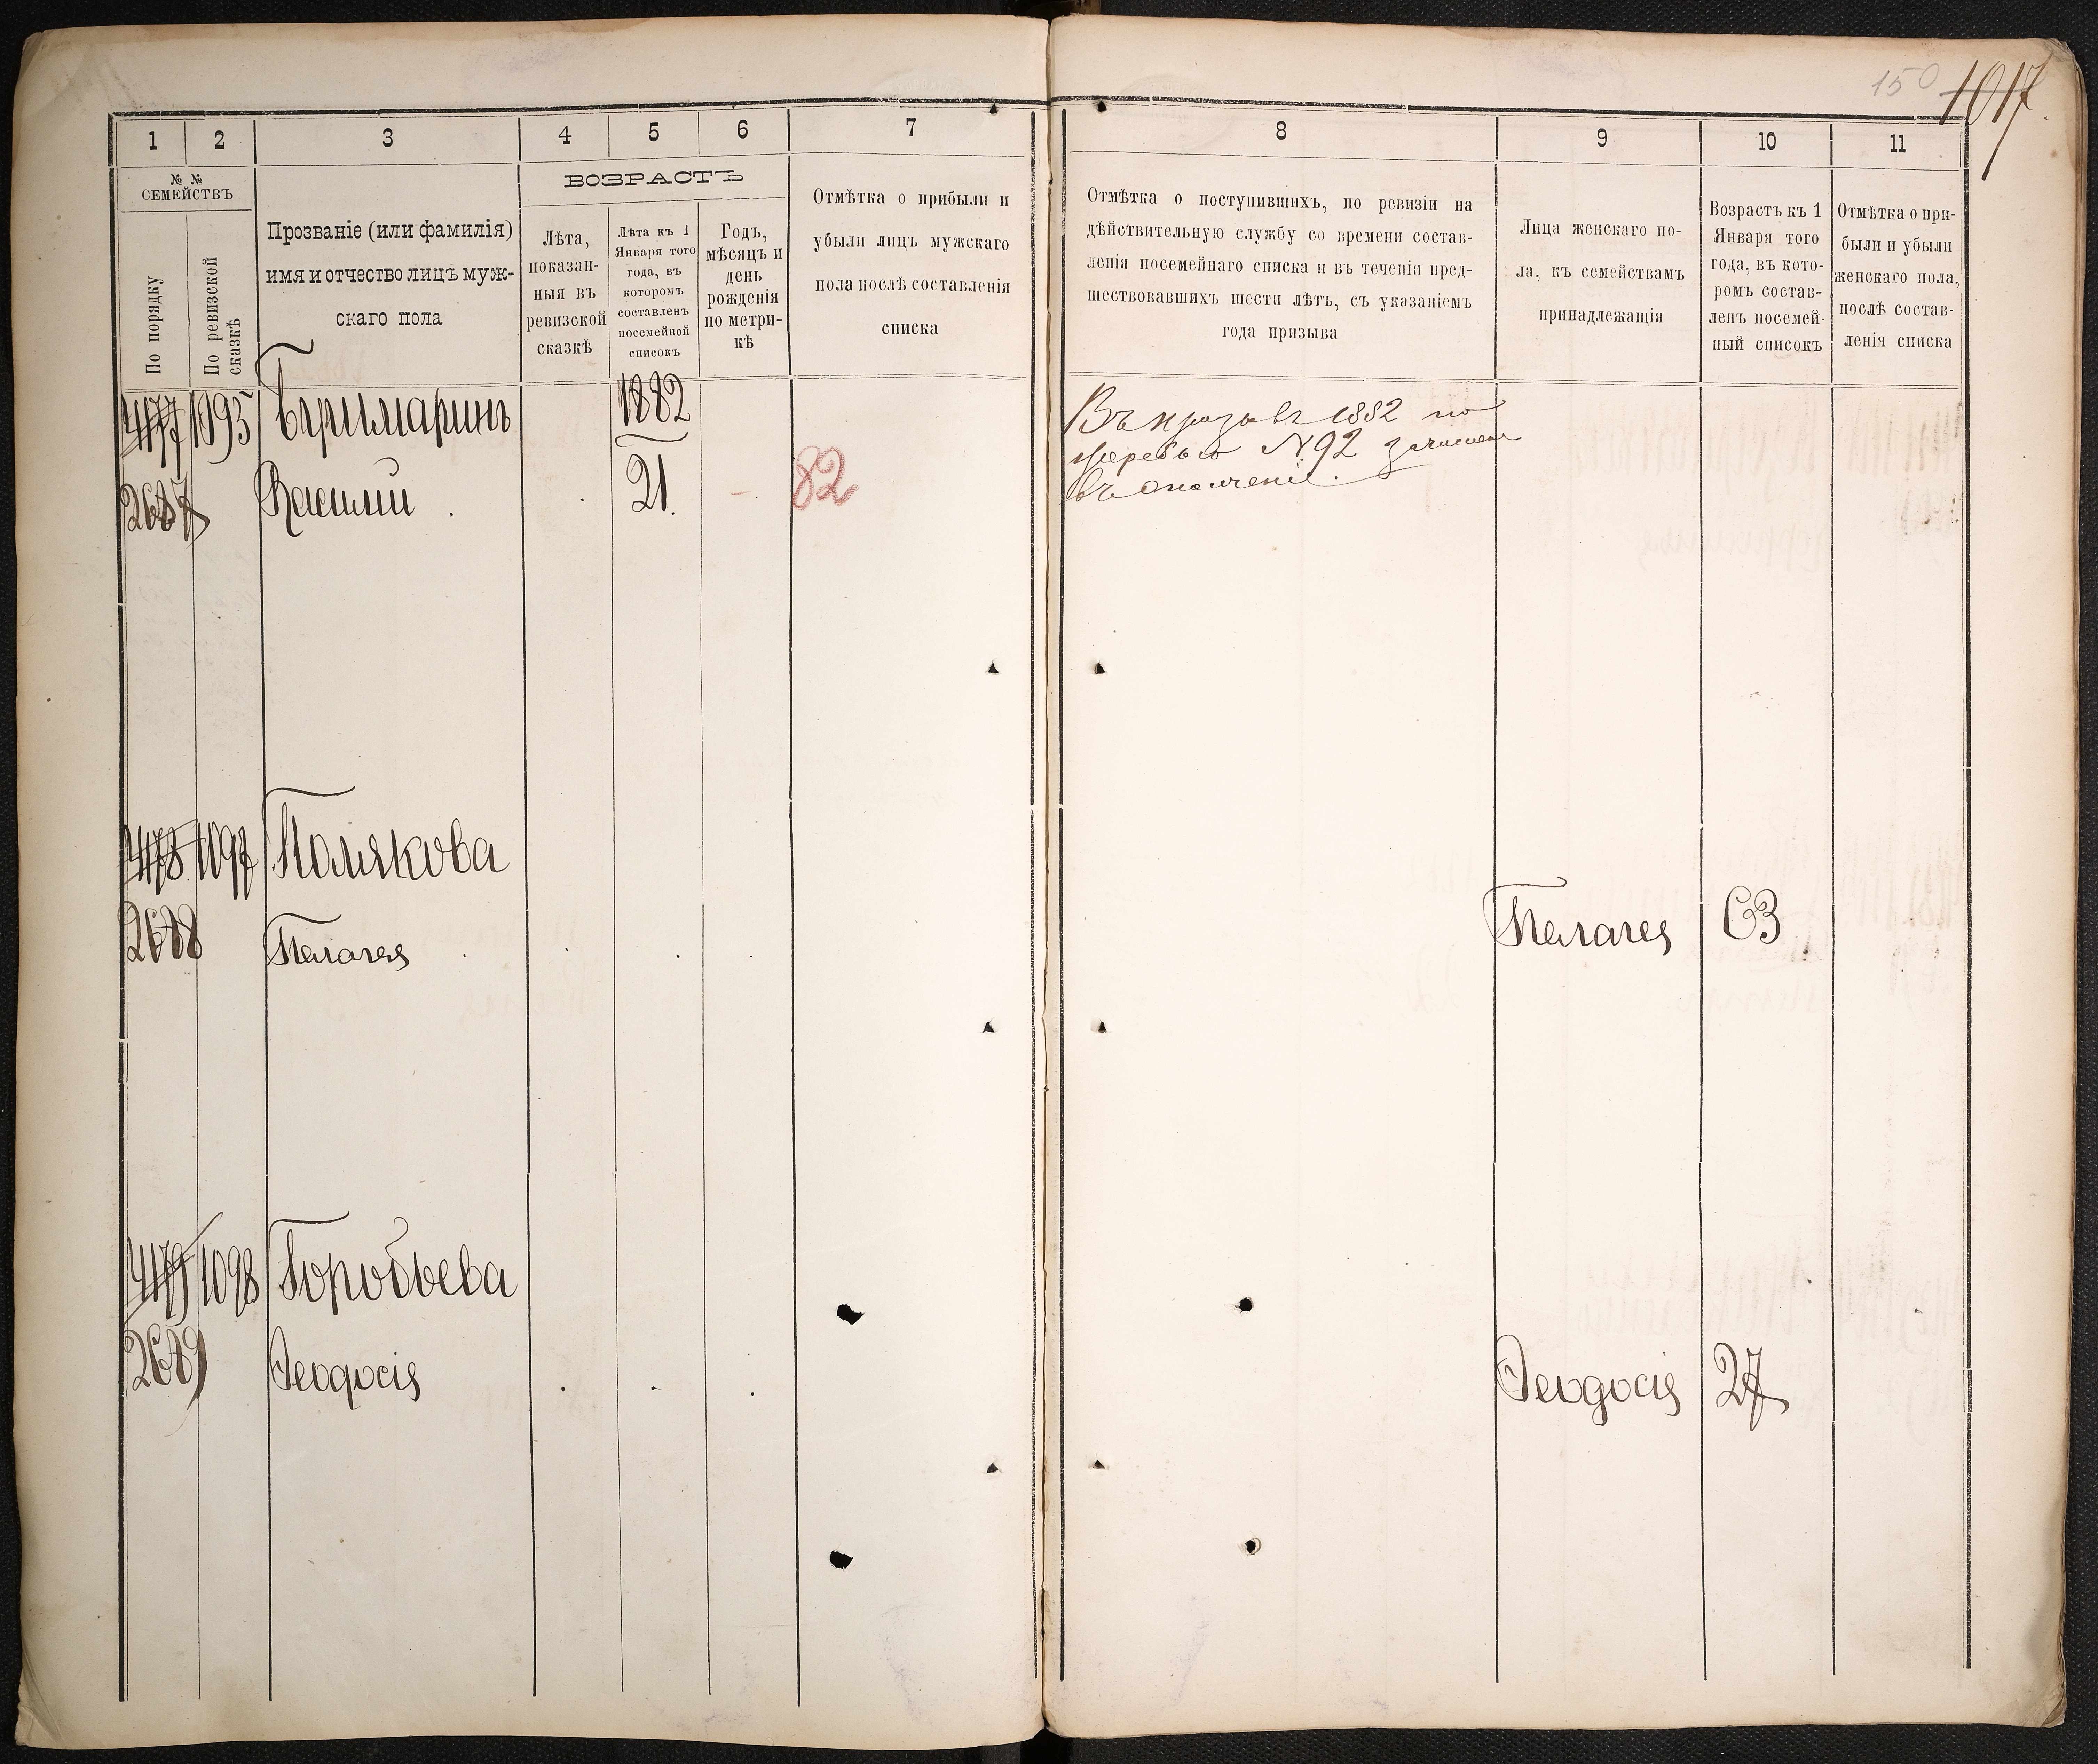 150 1017
1 2 3 4 5 6 7 8 9 10 11
№ №
СЕМЕЙСТВЪ
По порядку
По ревизской
сказкѣ
Прозваніе (или фамилія)
имя и отчество лицъ муж-
скаго пола
ВОЗРАСТЪ
Лѣта,
показан-
ныя въ
ревизской
сказкѣ
Лѣта къ 1
Января того
года, въ
которомъ
составленъ
посемейной
списокъ
Годъ,
мѣсяцъ и
день
рожденія
по метри-
кѣ
Отмѣтка о прибыли и
убыли лицъ мужскаго
пола послѣ составленія
списка
Отмѣтка о поступившихъ, по ревизіи на
дѣйствительную службу со времени состав-
ленія посемейнаго списка и въ теченіи пред-
шествовавшихъ шести лѣтъ, съ указаніемъ
года призыва
Лица женскаго по-
ла, къ семействамъ
принадлежащія
Возрастъ къ 1
Января того
года, въ кото-
ромъ состав-
ленъ посемей-
ный списокъ
Отмѣтка о при-
были и убыли
женскаго пола,
послѣ состав-
ленія списка
4177 1095 1882
2687 Василій 21. 82
Въ призывъ 1882 по
жеребью №92 зачислен
въ ополченіе.
4178 1097 Полякова
2688 Пелагея Пелагея 63
4179 1098 Горобьева
2689 Ѳеодосія Ѳеодосія 27